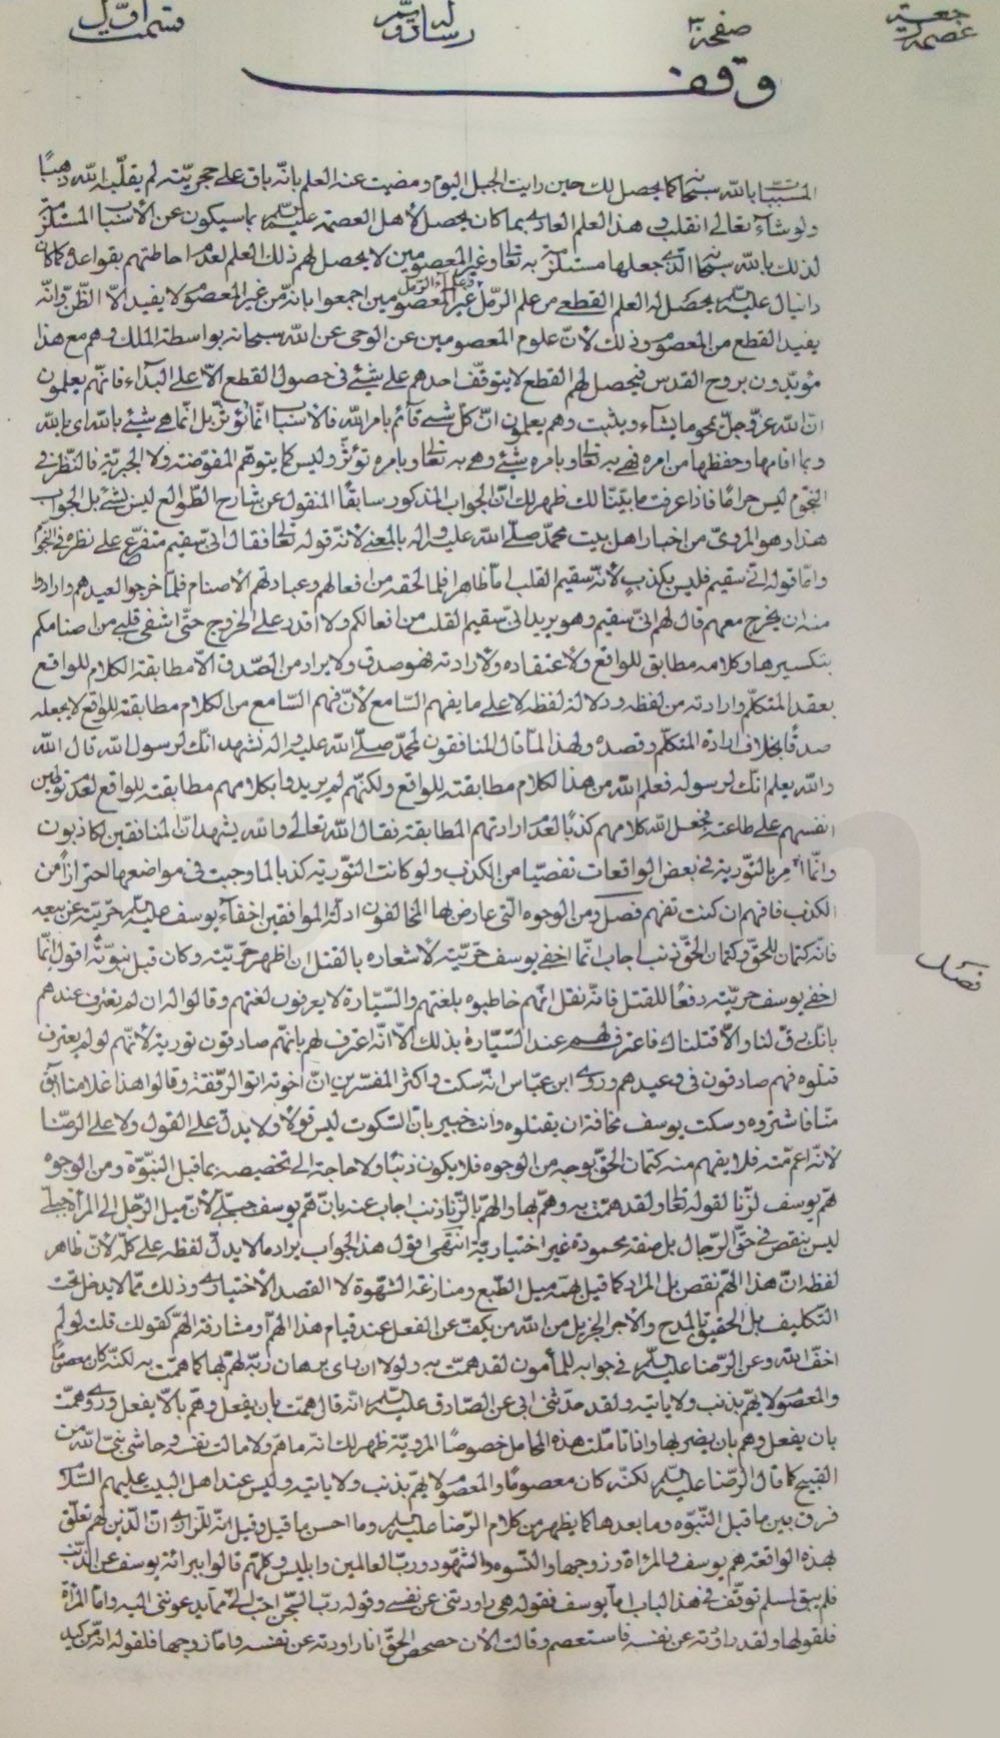 قسمت اوّل
رسالة دويم
صفحة
عصمة رجعية
وقف
المسببات بالله سبحانه كما يحصل لك حين رايت الجبل اليوم ومضيت عنه العلم بانّه باق على حجريّته لم يقلّبه الله ذهبًا
ولو شاء تعالى انقلب و هذا العلم العادي بما كان يحصل لأهل العصمة عليهم السلام بما سيكون عن الأسباب المستلزمة
لذلك بالله سبحانه الّذي جعلها مستلزمة به تعالى وغير المعصومين لا يحصل لهم ذلك العلم لعدم احاطتهم بقواعده كما كان
دانيال عليه السلام يحصل له العلم القطعي من علم الرّمل وعلماء الرّمل غير المعصومين اجمعوا بانّه من غير المعصوم لا يفيد الّا الظّن وانّه
يفيد القطع من المعصوم وذلك لأنّ علوم المعصومين عن الوحي عن الله سبحانه بواسطة الملك وهم مع هذا
مؤيّدون بروح القدس فيحصل لهم القطع لا يتوقّف احدهم على شيئ في حصول القطع الّا على البداء فانّهم يعلمون
انّ الله عزّ وجلّ يمحو ما يشاء ويثبت وهم يعلمون انّ كلّ شيء قائم بامر الله فالأسباب انّما تؤثّر بل انّما هي شيئ بالله اى بالله
وبما اقامها وحفظها من امره فهي به تعالى وبامره شيئ وهي به تعالى وبامره تؤثّر وليس كما يتوهّم المفوّضة ولا الجبريّة فالنّظر في
النّجوم ليس حرامًا فاذا عرفت ما بيّنّا لك ظهر لك انّ الجواب المذكور سابقًا المنقول عن شارح الطّوالع ليس بشيئ بل الجواب
هذا وهو المرويّ من اخبار اهل بيت محمّد صلّى الله عليه واله بالمعنى لأنّ قوله تعالى فقال انّي سقيم متفرّع على نظره في النّجوم
وامّا قوله انّي سقيم فليس بكذب لأنّه سقيم القلب امّا ظاهرا فلما لحقه من افعالهم وعبادتهم الأصنام فلمّا خرجوا لعيدهم وارادوا
منه ان يخرج معهم قال لهم انّي سقيم وهو يريد انّي سقيم القلب من افعالكم ولا اقدر على الخروج حتّى اشفي قلبي من اصنامكم
بتكسيرها وكلامه مطابق للواقع ولأعتقاده ولأرادته فهو صدق ولا يراد من الصّدق الّا مطابقة الكلام للواقع
بعقد المتكلّم وارادته من لفظه ودلالة لفظه لا على ما يفهم السّامع لأنّ فهم السّامع من الكلام مطابقة للواقع لا يجعله
صدقًا بخلاف ارادة المتكلّم وقصده ولهذا لمّا قال المنافقون لمحمّد صلّى الله عليه واله نشهد انّك لرسول الله قال الله
والله يعلم انّك لرسوله فعلم الله من هذا الكلام مطابقته للواقع ولكنّهم لم يريدوا بكلامهم مطابقته للواقع لعدم توطين
انفسهم على طاعته فجعل الله كلامهم كذبًا لعدم ارادتهم المطابقة فقال الله تعالى والله يشهد انّ المنافقين لكاذبون
وانّما امر بالتّورية في بعض الواقعات تفصّيا من الكذب ولو كانت التّورية كذبا لما وجبت في مواضعها احترازًا من
الكذب فافهم ان كنت تفهم فصل ومن الوجوه الّتي عارض بها المخالفون ادلّة الموافقين اخفاء يوسف عليه السلام حرّيته عن بيعه
فانّه كتمان للحقّ وكتمان الحقّ ذنب اجاب انّما اخفى يوسف حرّيته لأشعاره بالقتل ان اظهر حرّيّته وكان قبل نبوّته اقول انّما
فصل
اخفى يوسف حريّته دفعًا للقتل فانّه نقل انّهم خاطبوه بلغتهم والسّيّارة لا يعرفون لغتهم وقالوا له ان لم تعترف عندهم
بانّك رقّ لنا والّا قتلناك فاعترف لهم عند السّيّارة بذلك الّا انّه اعترف لهم بانّهم صادقون تورية لأنّهم لو لم يعترف
قتلوه فهم صادقون في وعيدهم وروى ابن عبّاس انّه سكت واكثر المفسّرين انّ اخوته اتوا الرّفقة وقالوا هذا غلامنا ابق
منّا فاشتروه وسكت يوسف مخافة ان يقتلوه وانت خبير بانّ السّكوت ليس قولا ولا يدلّ على القول ولا على الرضا
لأنّه اعمّ منه فلا يفهم منه كتمان الحقّ بوجه من الوجوه فلا يكون ذنبًا ولا حاجة الى تخصيصه بما قبل النبوّة ومن الوجوه
همّ يوسف لزنا لقوله تعالى ولقد همّت به وهمّ بها والهمّ بالزّنا ذنب اجاب عنه بانّ همّ يوسف جبلّيّ لأنّ ميل الرّجل الى المرأة جبلّي
ليس بنقص في حقّ الرّجال بل صفة محمودة غير اختياريّة انتهى اقول هذا الجواب يراد ما لا يدلّ لفظه على كلّه لأنّ ظاهر
لفظه انّ هذا الهمّ نقص بل المراد كما قيل همّه ميل الطّبع ومنازعة الشّهوة لا القصد الأختياري وذلك ممّا لا يدخل تحت
التكليف بل الحقيق بالمدح والأجر الجزيل من الله من يكفّ عن الفعل عند قيام هذا الهمّ او مشارفة الهمّ كقولك قتلته لو لم
اخف الله وعن الرّضا عليه السلام في جوابه للمأمون لقد همّت به ولولا ان راى برهان ربّه لهمّ بها كما همّت به لكنّه كان معصومًا
والمعصوم لا يهمّ بذنب ولا ياتيه ولقد حدّثني ابي عن الصّادق عليه السلام انّه قال همّت بان يفعل وهمّ بالّا يفعل وروى همّت
بان يفعل وهمّ بان يضربها وانا تامّلت هذه المحامل خصوصًا المرويّة ظهر لك انّه ما همّ ولا مالت نفسه وحاشى نبيّ الله من
القبيح كما قال الرّضا عليه السلام لكنّه كان معصومًا والمعصوم لا يهمّ بذنب ولا ياتيه وليس عند اهل البيت عليهم السّلام
فرق بين ما قبل النّبوّة وما بعدها كما يظهر من كلام الرّضا عليه السلام وما احسن ما قيل وقيل انّه للرّازي انّ الّذين لهم تعلّق
بهذه الواقعة هم يوسف والمرأة وزوجها والنّسوة والشّهود وربّ العالمين وابليس وكلّهم قالوا ببرائة يوسف عن الذّنب
فلم يبق لمسلم توقّف في هذا الباب امّا يوسف فقوله هي راودتني عن نفسي وقوله ربّ السّجن احبّ اليّ ممّا يدعونني اليه وامّا المرأة
فلقولها ولقد راودته عن نفسه فاستعصم وقالت الآن حصحص الحقّ انا راودته عن نفسه وامّا زوجها فلقوله انّه من كيد